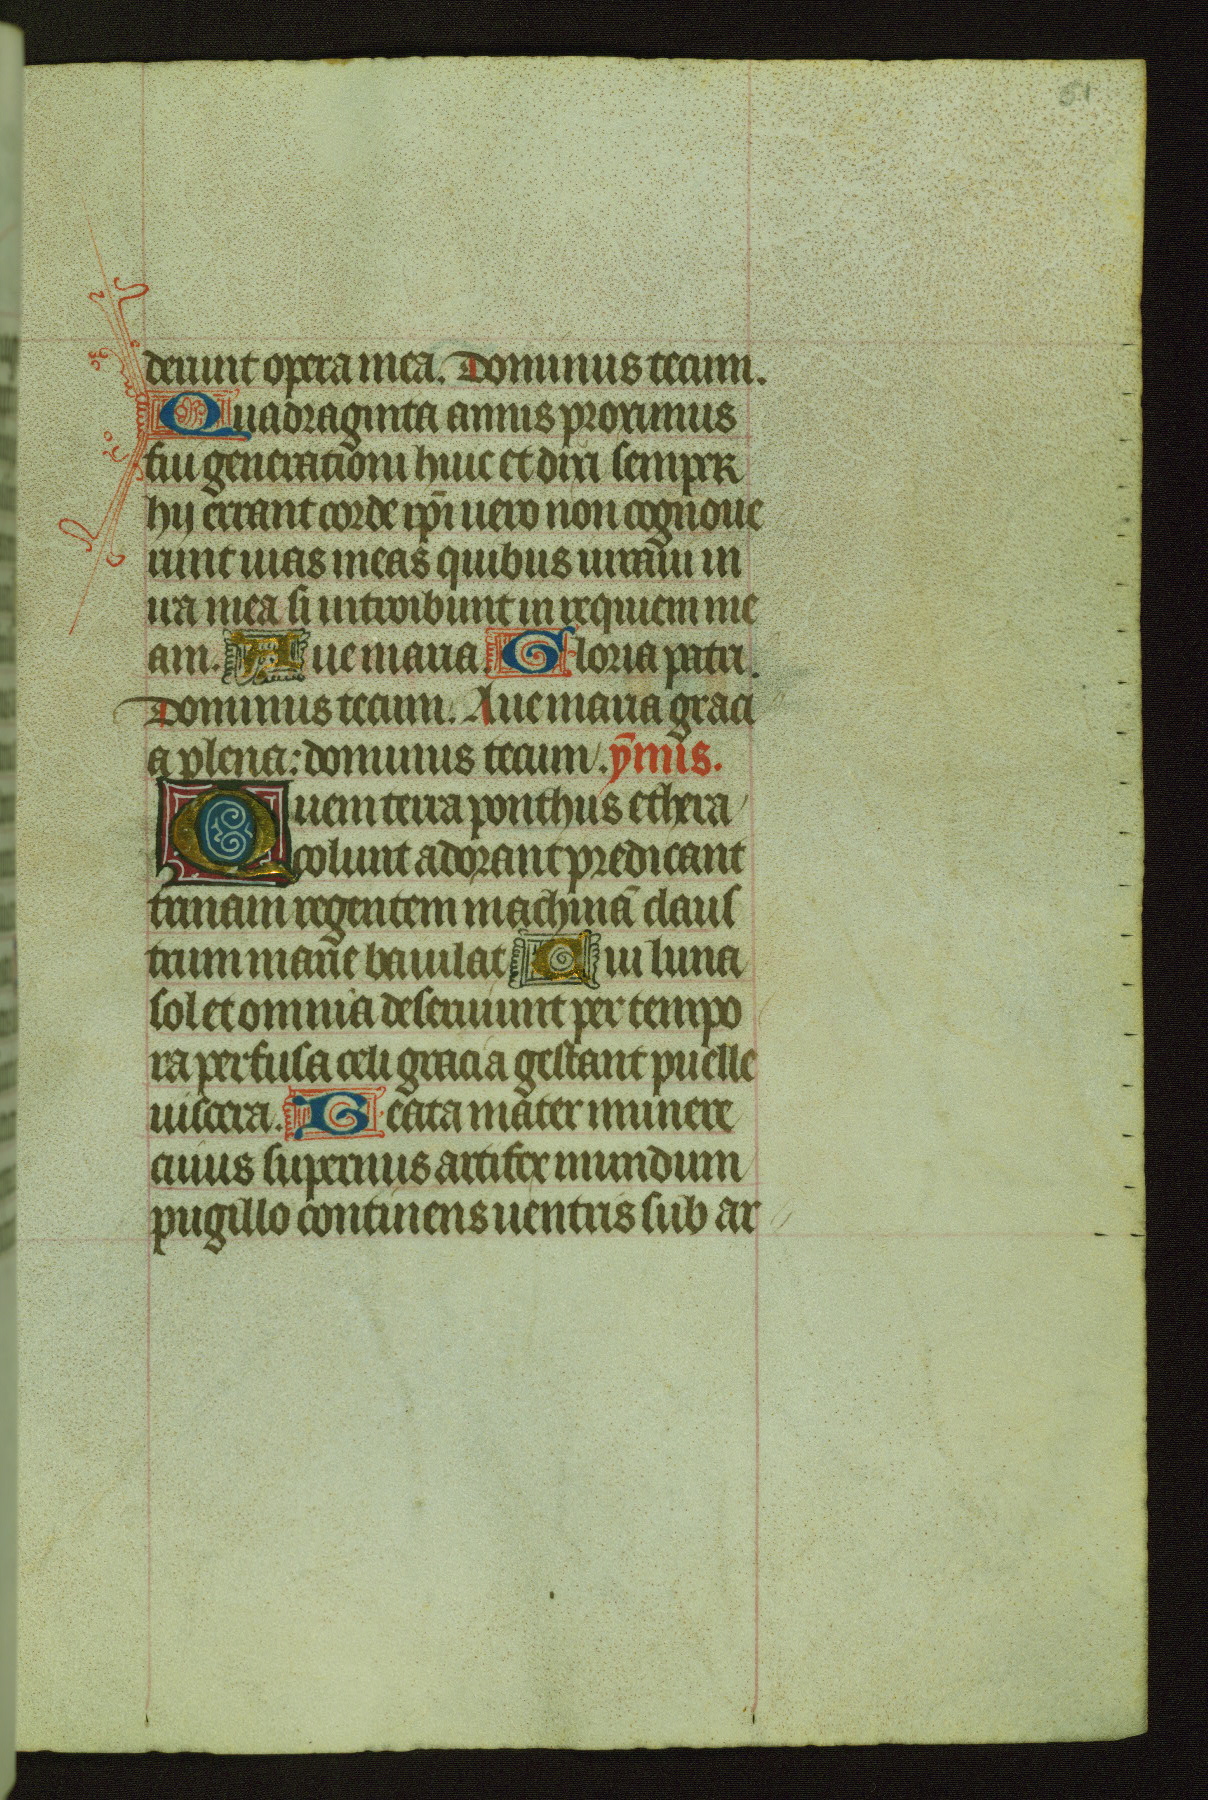 51
derunt opera mea. Dominus tecum.
Quadraginta annis proximus
fui generationi huic et dixi semper
hij errant corde ip̄i uero non cognoue
runt uias meas quibus iuraui in
ira mea si introibunt in requiem me
am. Aue maria. Gloria patri.
Dominus tecum. Aue maria graci
a plena: dominus tecum. ȳmis.
Quem terra ponthus ethera
colunt adorant predicant
trinam regentem machinā claus
trum marie baiulat Cui luna
sol et omnia deseruiunt per tempo
ra perfusa celi gracia gestant puelle
uiscera. Beata mater munere
cuius supernus artifex mundum
pugillo continens uentris sub ar